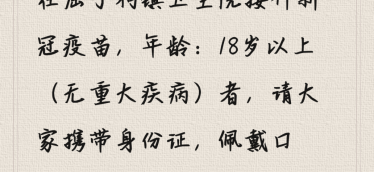 冠疫苗，年龄：18岁以上
（无重大疾病）者，请大
家携带身份证，佩戴口